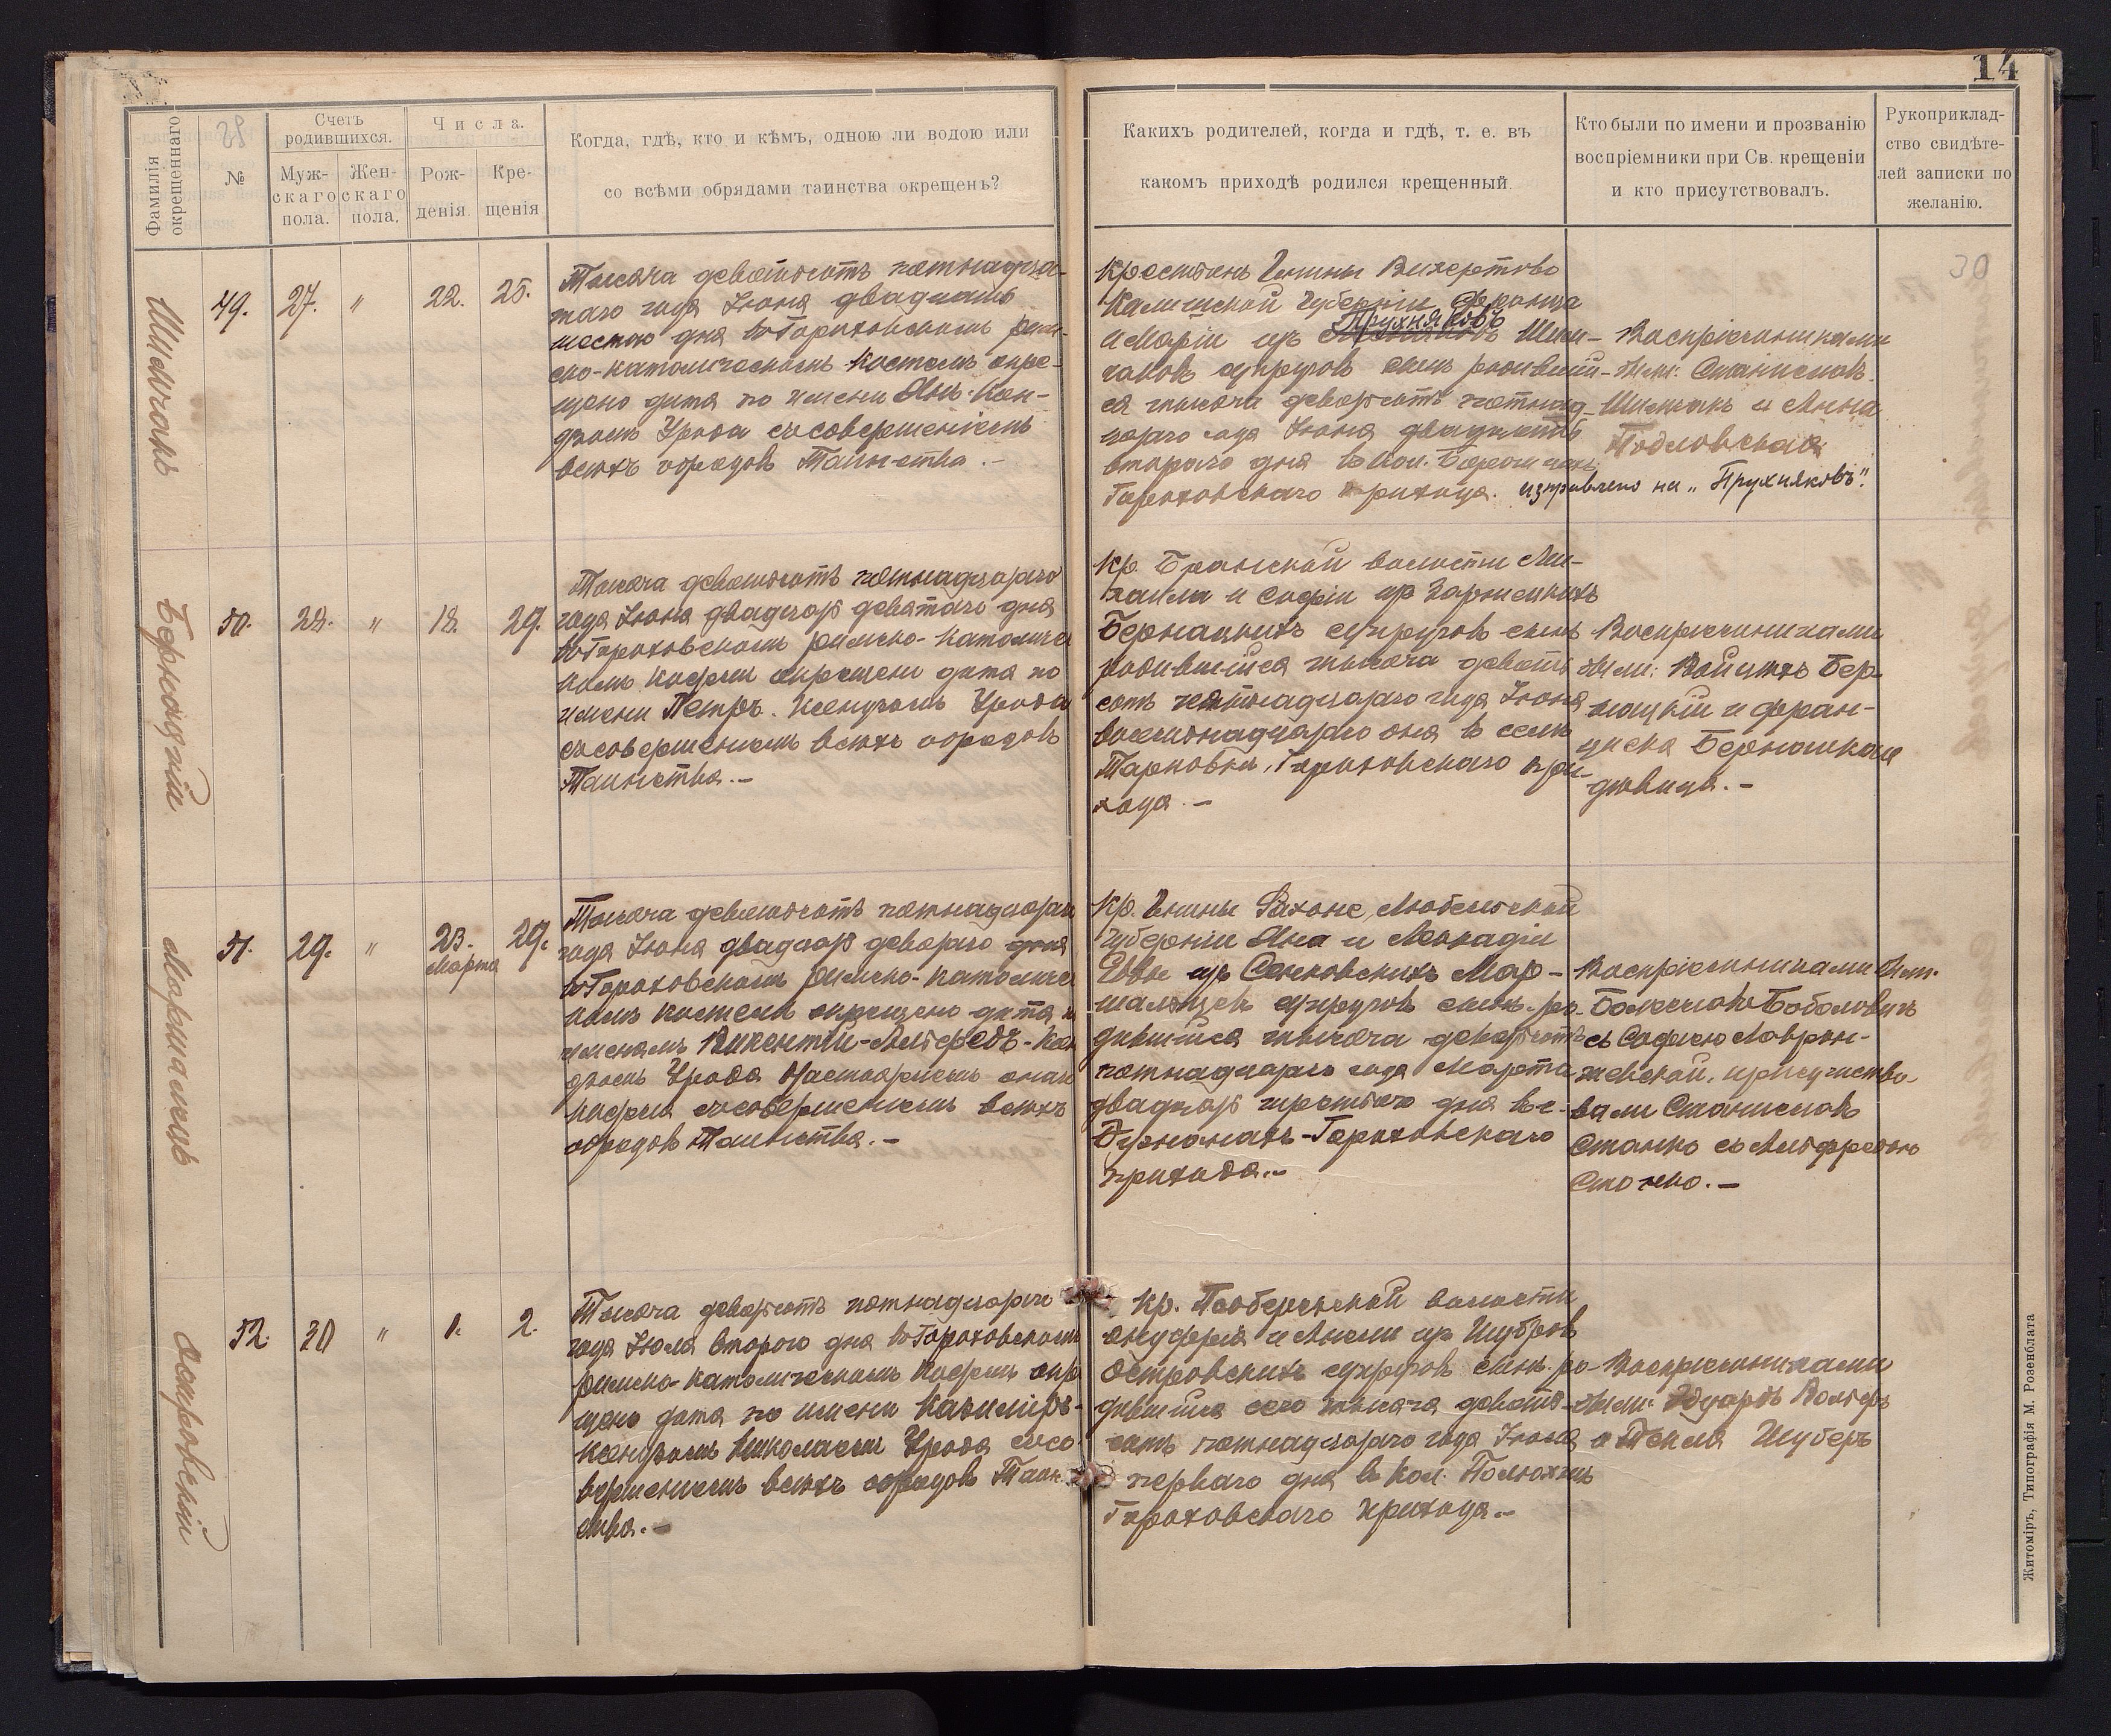 14
Фамилія окрещеннаго
28
№
Счетъ родившихся.
Муж-
скаго
пола.
Жен-
скаго
пола.
Числа.
Рож-
денія.
Кре-
щенія
Когда, гдѣ, кто и кѣмъ, одною ли водою или
со всѣми обрядами таинства окрещенъ?
Какихъ родителей, когда и гдѣ, т. е. въ
какомъ приходѣ родился крещенный
Кто были по имени и прозванію
воспріемники при Св. крещеніи
и кто присутствовалъ.
Рукоприклад-
ство свидѣте-
лей записки по
желанію.
30
Шимчакъ
49. 27. " 22. 25.
Тысяча девятьсотъ пятнадца-
таго года Іюня двадцать
шестаго дня въ Гороховскомъ рим-
ско-католическомъ костелѣ окре-
щено дитя по имени Янъ. Ксен-
дзомъ Урода съ совершеніемъ
всѣхъ обрядовъ Таинства.-
Крестьянъ Гмины
Калишской Губерніи Франца
Прухняковъ
и Маріи изъ Шим-
чаковъ супруговъ сынъ родивший-
ся тысяча девятьсотъ пятнад-
цатаго года Іюня двадцать
второго дня въ кол.
Гороховскаго прихода.
Воспріемниками
были: Станиславъ
Шимчакъ и Анна
исправлено на „Прухняковъ".
Бернацкій
50. 28. " 18. 29.
Тысяча девятьсотъ пятнадцатаго
года Іюня двадцать девятаго дня
въ Гороховскомъ римско-католиче
комъ костелѣ окрещено дитя по
имени Петръ. Ксендзомъ Урода
съ совершеніемъ всѣхъ обрядовъ
Таинства.-
Кр. Бранской волости Ми-
хаила и Софіи изъ
Бернацкихъ супруговъ сынъ
родившійся тысяча девять
сотъ пятнадцатаго года Іюня
восемнадцатаго дня въ селѣ
Тарновка, Гороховскаго при-
хода.-
Воспріемниками
были: Войцехъ Бер-
нацкій и Фран-
циска Бернацкая
дѣвица.-
Маршалекъ
51. 29. " 23. Марта 29.
Тысяча девятьсотъ пятнадцатаго
года Іюня двадцать девятаго дня
въ Гороховскомъ римско-католиче
комъ костелѣ окрещено дитя
именемъ Викентій-Альфредъ-Ксен
дзомъ Урода Настоятелемъ онаго
костела съ совершеніемъ всѣхъ
обрядовъ Таинства.-
Кр. Гмины Люблинской
Губерніи Яна и Леокадіи
Евы изъ Мар-
шалекъ супруговъ сынъ ро-
дившійся тысяча девятьсотъ
пятнадцатаго года Марта
двадцать третьяго дня въ с.
Гороховскаго
прихода.-
Воспріемниками были
Болеславъ
съ Софіею Лаврын-
присутство-
вали Станиславъ
Станко съ Альфредомъ
Островскій
52. 30 " 1. 2.
Тысяча девятьсотъ пятнадцатаго
года Іюля второго дня въ Гороховскомъ
римско-католическомъ костелѣ окре
щено дитя по имени Казимиръ-
ксендзомъ Николаемъ Урода съ со
вершеніемъ всѣхъ обрядовъ Таин
ства.-
Кр. Подберезской волости
Онуфрія и изъ
Островскихъ супруговъ сынъ ро-
дившійся сего тысяча девять-
сотъ пятнадцатаго года Іюля
перваго дня въ кол.
Гороховскаго прихода.-
Воспріемниками
были: Эдуардъ
и Текля Шуберъ
Житоміръ, Типографія М. Розенблата